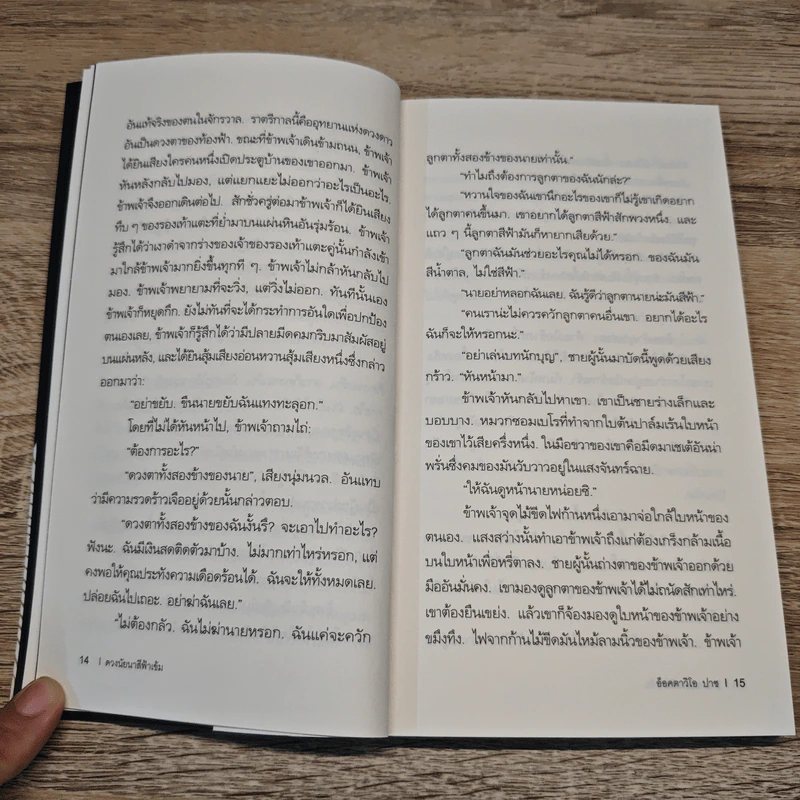 อันแท้จริงของตนในจักรวาล. ราตรีกาลนี้คืออุทยานแห่งดวงดาว
อันเป็นดวงตาของท้องฟ้า. ขณะที่ข้าพเจ้าเดินข้ามถนน, ข้าพเจ้า
ได้ยินเสียงใครคนหนึ่งเปิดประตูบ้านของเขาออกมา, ข้าพเจ้า
หันหลังกลับไปมอง, แต่แยกแยะไม่ออกว่าอะไรเป็นอะไร.
ข้าพเจ้าจึงออกเดินต่อไป. สักชั่วครู่ต่อมาข้าพเจ้าก็ได้ยินเสียง
ทึบ ๆ ของรองเท้าแตะที่ย่ำมาบนแผ่นหินอันรุ่มร้อน. ข้าพเจ้า
รู้สึกได้ว่าเงาดำจากร่างของเจ้าของรองเท้าแตะคู่นั้นกำลังเข้า
มาใกล้ข้าพเจ้ามากยิ่งขึ้นทุกที ๆ. ข้าพเจ้าไม่กล้าหันกลับไป
มอง. ข้าพเจ้าพยายามที่จะวิ่ง, แต่วิ่งไม่ออก. ทันทีนั้นเอง
ข้าพเจ้าก็หยุดกึก. ยังไม่ทันที่จะได้กระทำการอันใดเพื่อปกป้อง
ตนเองเลย, ข้าพเจ้าก็รู้สึกได้ว่ามีปลายมีดคมกริบมาสัมผัสอยู่
บนแผ่นหลัง, และได้ยินสุ้มเสียงอ่อนหวานสุ้มเสียงหนึ่งซึ่งกล่าว
ออกมาว่า:
"อย่าขยับ. ขืนนายขยับฉันแทงทะลุอก."
โดยที่ไม่ได้หันหน้าไป, ข้าพเจ้าถามไถ่:
"ต้องการอะไร?"
"ดวงตาทั้งสองข้างของนาย", เสียงนุ่มนวล. อันแทบ
ว่ามีความรวดร้าวเจืออยู่ด้วยนั้นกล่าวตอบ.
"ดวงตาทั้งสองข้างของฉันงั้นรึ? จะเอาไปทำอะไร?
ฟังนะ. ฉันมีเงินสดติดตัวมาบ้าง. ไม่มากเท่าไหร่หรอก, แต่
คงพอให้คุณประทังความเดือดร้อนได้. ฉันจะให้ทั้งหมดเลย.
ปล่อยฉันไปเถอะ. อย่าฆ่าฉันเลย."
"ไม่ต้องกลัว. ฉันไม่ฆ่านายหรอก. ฉันแค่จะควัก
14 | ดวงนัยนาสีฟ้าเข้ม
ลูกตาทั้งสองข้างของนายเท่านั้น."
"ทำไมถึงต้องการลูกตาของฉันนักล่ะ?"
"หวานใจของฉันเขานึกอะไรของเขาก็ไม่รู้เขาเกิดอยาก
ได้ลูกตาคนขึ้นมา. เขาอยากได้ลูกตาสีฟ้าสักพวงหนึ่ง. และ
แถว ๆ นี้ลูกตาสีฟ้ามันก็หายากเสียด้วย."
"ลูกตาฉันมันช่วยอะไรคุณไม่ได้หรอก. ของฉันมัน
สีน้ำตาล, ไม่ใช่สีฟ้า."
"นายอย่าหลอกฉันเลย. ฉันรู้ดีว่าลูกตานายน่ะมันสีฟ้า."
"คนเราน่ะไม่ควรควักลูกตาคนอื่นเขา. อยากได้อะไร
ฉันก็จะให้หรอกนะ."
"อย่าเล่นบทนักบุญ", ชายผู้นั้นมาบัดนี้พูดด้วยเสียง
กร้าว. "หันหน้ามา."
ข้าพเจ้าหันกลับไปหาเขา. เขาเป็นชายร่างเล็กและ
บอบบาง. หมวกซอมเบโรที่ทำจากใบต้นปาล์มเร้นใบหน้า
ของเขาไว้เสียครึ่งหนึ่ง. ในมือขวาของเขาคือมีดมาเชเต้อันน่า
พรั่นซึ่งคมของมันวับวาวอยู่ในแสงจันทร์ฉาย.
"ให้ฉันดูหน้านายหน่อยซิ."
ข้าพเจ้าจุดไม้ขีดไฟก้านหนึ่งเอามาจ่อใกล้ใบหน้าของ
ตนเอง. แสงสว่างนั้นทำเอาข้าพเจ้าถึงแก่ต้องเกร็งกล้ามเนื้อ
บนใบหน้าเพื่อหรี่ตาลง. ชายผู้นั้นถ่างตาของข้าพเจ้าออกด้วย
มืออันมั่นคง. เขามองดูลูกตาของข้าพเจ้าได้ไม่ถนัดสักเท่าไหร่.
เขาต้องยืนเขย่ง. แล้วเขาก็จ้องมองดูใบหน้าของข้าพเจ้าอย่าง
ขมึงทึง. ไฟจากก้านไม้ขีดมันไหม้ลามนิ้วของข้าพเจ้า. ข้าพเจ้า
อ็อคตาวิโอ ปาซ | 15